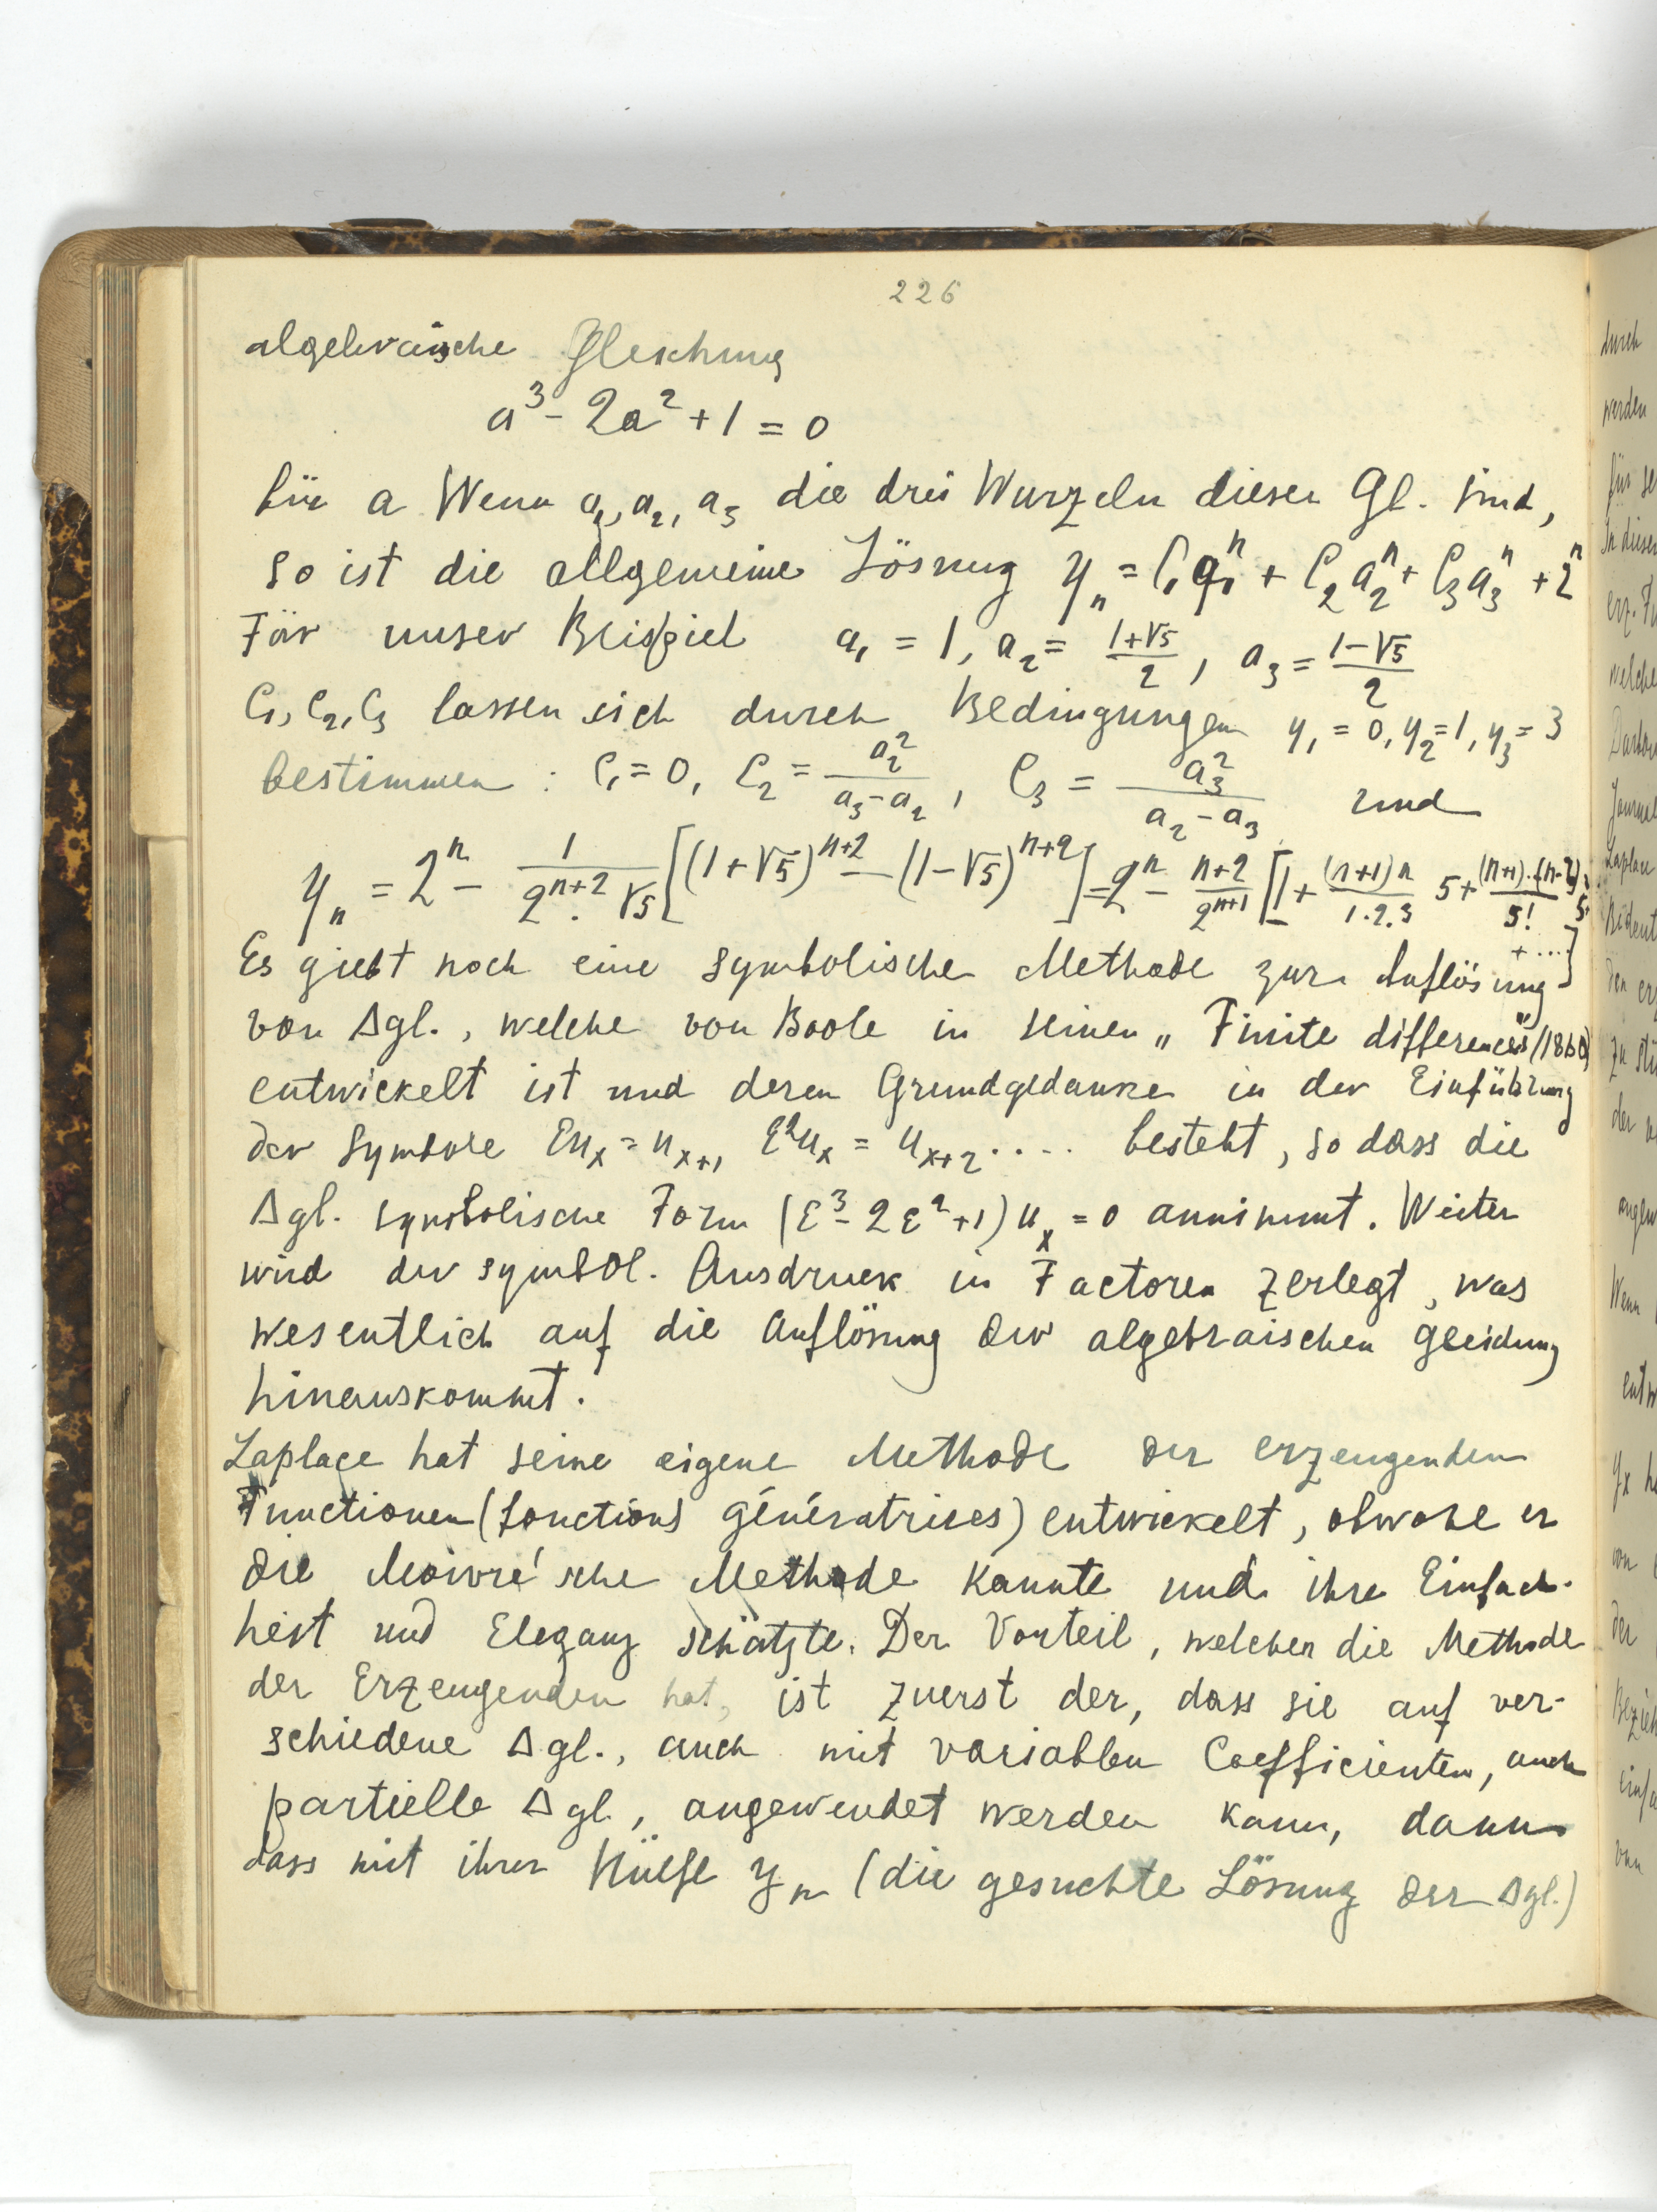 226
algebraische Gleichung
a³ - 2a² + 1 = 0
für a Wenn a₁, a₂, a₃ die drei Wurzeln dieser Gl. sind,
so ist die allgemeine Lösung yₙ = C₁a₁ⁿ + C₂a₂ⁿ + C₃a₃ⁿ + 2ⁿ
Für unser Beispiel a₁ = 1, a₂ = (1+√5)/2, a₃ = (1-√5)/2
C₁, C₂, C₃ lassen sich durch Bedingungen y₁ = 0, y₂ = 1, y₃ = 3
bestimmen : C₁ = 0, C₂ = a₂²/(a₃-a₂), C₃ = a₃²/(a₂-a₃) und
yₙ = 2ⁿ - 1/(2ⁿ⁺².√5) [(1+√5)ⁿ⁺² - (1-√5)ⁿ⁺²] = 2ⁿ - (n+2)/2ⁿ⁺¹ [1 + (n+1)n/1.2.3 5 + (n+1)..(n-2)/5! 5²
+ ...]
Es giebt noch eine symbolische Methode zur Auflösung
von Δgl., welche von Boole in seinen „Finite differences" (1860)
entwickelt ist und deren Grundgedanke in der Einführung
der Symbole Euₓ = uₓ₊₁ E²uₓ = uₓ₊₂ .... besteht, so dass die
Δgl. symbolische Form (E³ - 2E² + 1) uₓ = 0 annimmt. Weiter
wird der symbol. Ausdruck in Factoren zerlegt, was
wesentlich auf die Auflösung der algebraischen Gleichung
hinauskommt.
Laplace hat seine eigene Methode der erzeugenden
Functionen (fonctions génératrices) entwickelt, obwohl er
die Moivre'sche Methode kannte und ihre Einfach-
heit und Eleganz schätzte. Der Vorteil, welchen die Methode
der Erzeugenden hat, ist zuerst der, dass sie auf ver-
schiedene Δgl., auch mit variablen Coefficienten, auch
partielle Δgl., angewendet werden kann, dann
dass mit ihrer Hülfe yₙ (die gesuchte Lösung der Δgl.)
durch
werden
In dieser
welche
Wenn
von
der
von